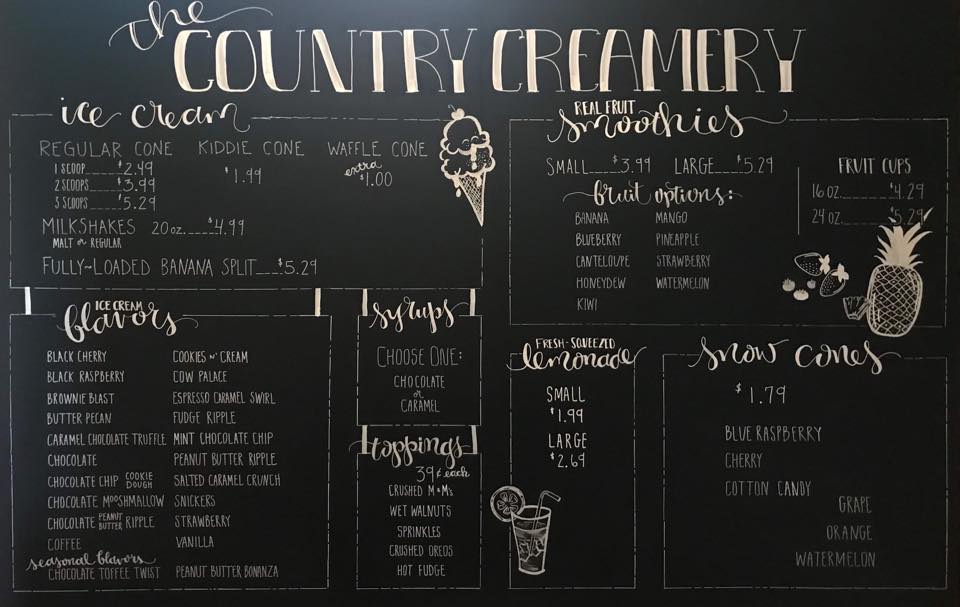 the
COUNTRY CREAMERY
ice cream
REGULAR CONE KIDDIE CONE WAFFLE CONE
1 SCOOP $2.49
2 SCOOPS $3.99
3 SCOOPS $5.29
$1.99
extra
$1.00
MILKSHAKES 20 oz. $4.99
MALT or REGULAR
FULLY~LOADED BANANA SPLIT $5.29
REAL FRUIT
smoothies
SMALL $3.99 LARGE $5.29
fruit options:
BANANA MANGO
BLUEBERRY PINEAPPLE
CANTELOUPE STRAWBERRY
HONEYDEW WATERMELON
KIWI
FRUIT CUPS
16 oz. $4.29
24 oz. $5.29
ICE CREAM
flavors
BLACK CHERRY COOKIES N' CREAM
BLACK RASPBERRY COW PALACE
BROWNIE BLAST ESPRESSO CARAMEL SWIRL
BUTTER PECAN FUDGE RIPPLE
CARAMEL CHOCOLATE TRUFFLE MINT CHOCOLATE CHIP
CHOCOLATE PEANUT BUTTER RIPPLE
CHOCOLATE CHIP COOKIE DOUGH SALTED CARAMEL CRUNCH
CHOCOLATE MOOSHMALLOW SNICKERS
CHOCOLATE PEANUT BUTTER RIPPLE STRAWBERRY
COFFEE VANILLA
seasonal flavors
CHOCOLATE TOFFEE TWIST PEANUT BUTTER BONANZA
syrups
CHOOSE ONE:
CHOCOLATE
or
CARAMEL
toppings
39¢ each
CRUSHED M&M's
WET WALNUTS
SPRINKLES
CRUSHED OREOS
HOT FUDGE
FRESH-SQUEEZED
lemonade
SMALL
$1.99
LARGE
$2.69
snow cones
$1.79
BLUE RASPBERRY
CHERRY
COTTON CANDY
GRAPE
ORANGE
WATERMELON